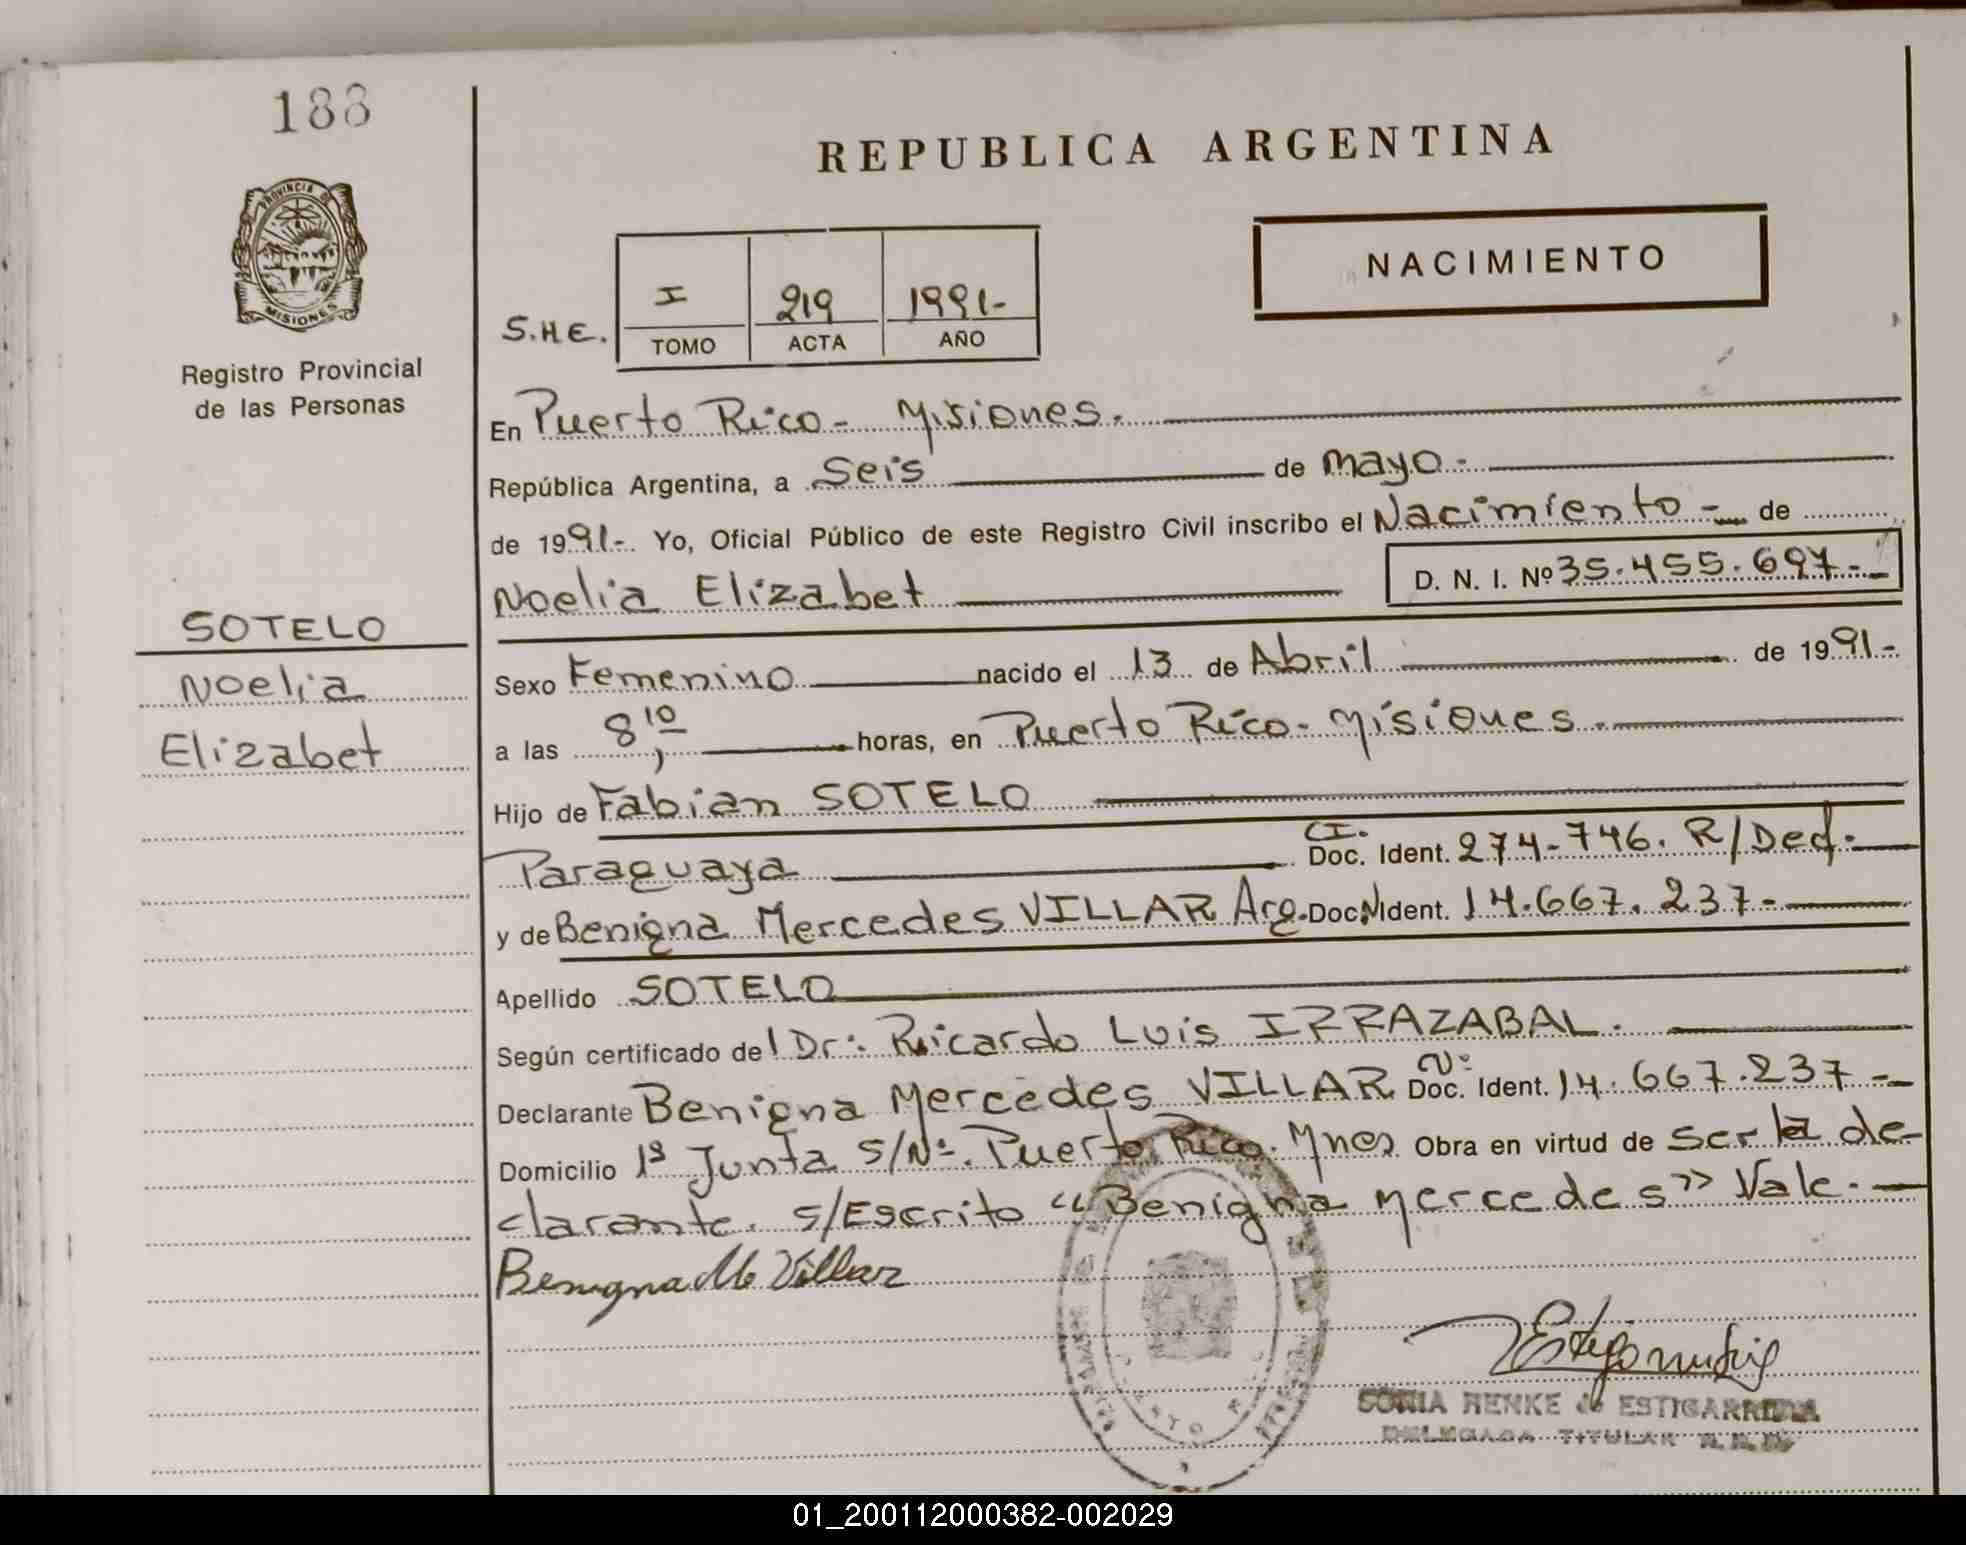 188
REPUBLICA ARGENTINA
PROVINCIA DE
MISIONES
NACIMIENTO
S.H.E.
I 219 1991-
TOMO ACTA AÑO
Registro Provincial
de las Personas
En Puerto Rico - Misiones.
República Argentina, a Seis de mayo.-
de 1991-. Yo, Oficial Público de este Registro Civil inscribo el Nacimiento - de
Noelia Elizabet D. N. I. Nº 35.455.697.-
SOTELO
Noelia
Elizabet
Sexo Femenino nacido el 13 de Abril de 1991.-
a las 8,10 horas, en Puerto Rico - Misiones.
Hijo de Fabian SOTELO
Paraguaya C.I. Doc. Ident. 274-746. R/Ded.
y de Benigna Mercedes VILLAR Arg. Doc. N Ident. 14.667.237-
Apellido SOTELO
Según certificado del Dr: Ricardo Luis IRRAZABAL.
Declarante Benigna Mercedes VILLAR N: Doc. Ident. 14.667.237-
Domicilio 1º Junta S/Nº. Puerto Rico. Mnes Obra en virtud de ser la de-
clarante. s/Escrito "Benigna Mercedes" Vale.
Benigna M Villar
SONIA HENKE de ESTIGARRIBIA
DELEGADA TITULAR
01_200112000382-002029